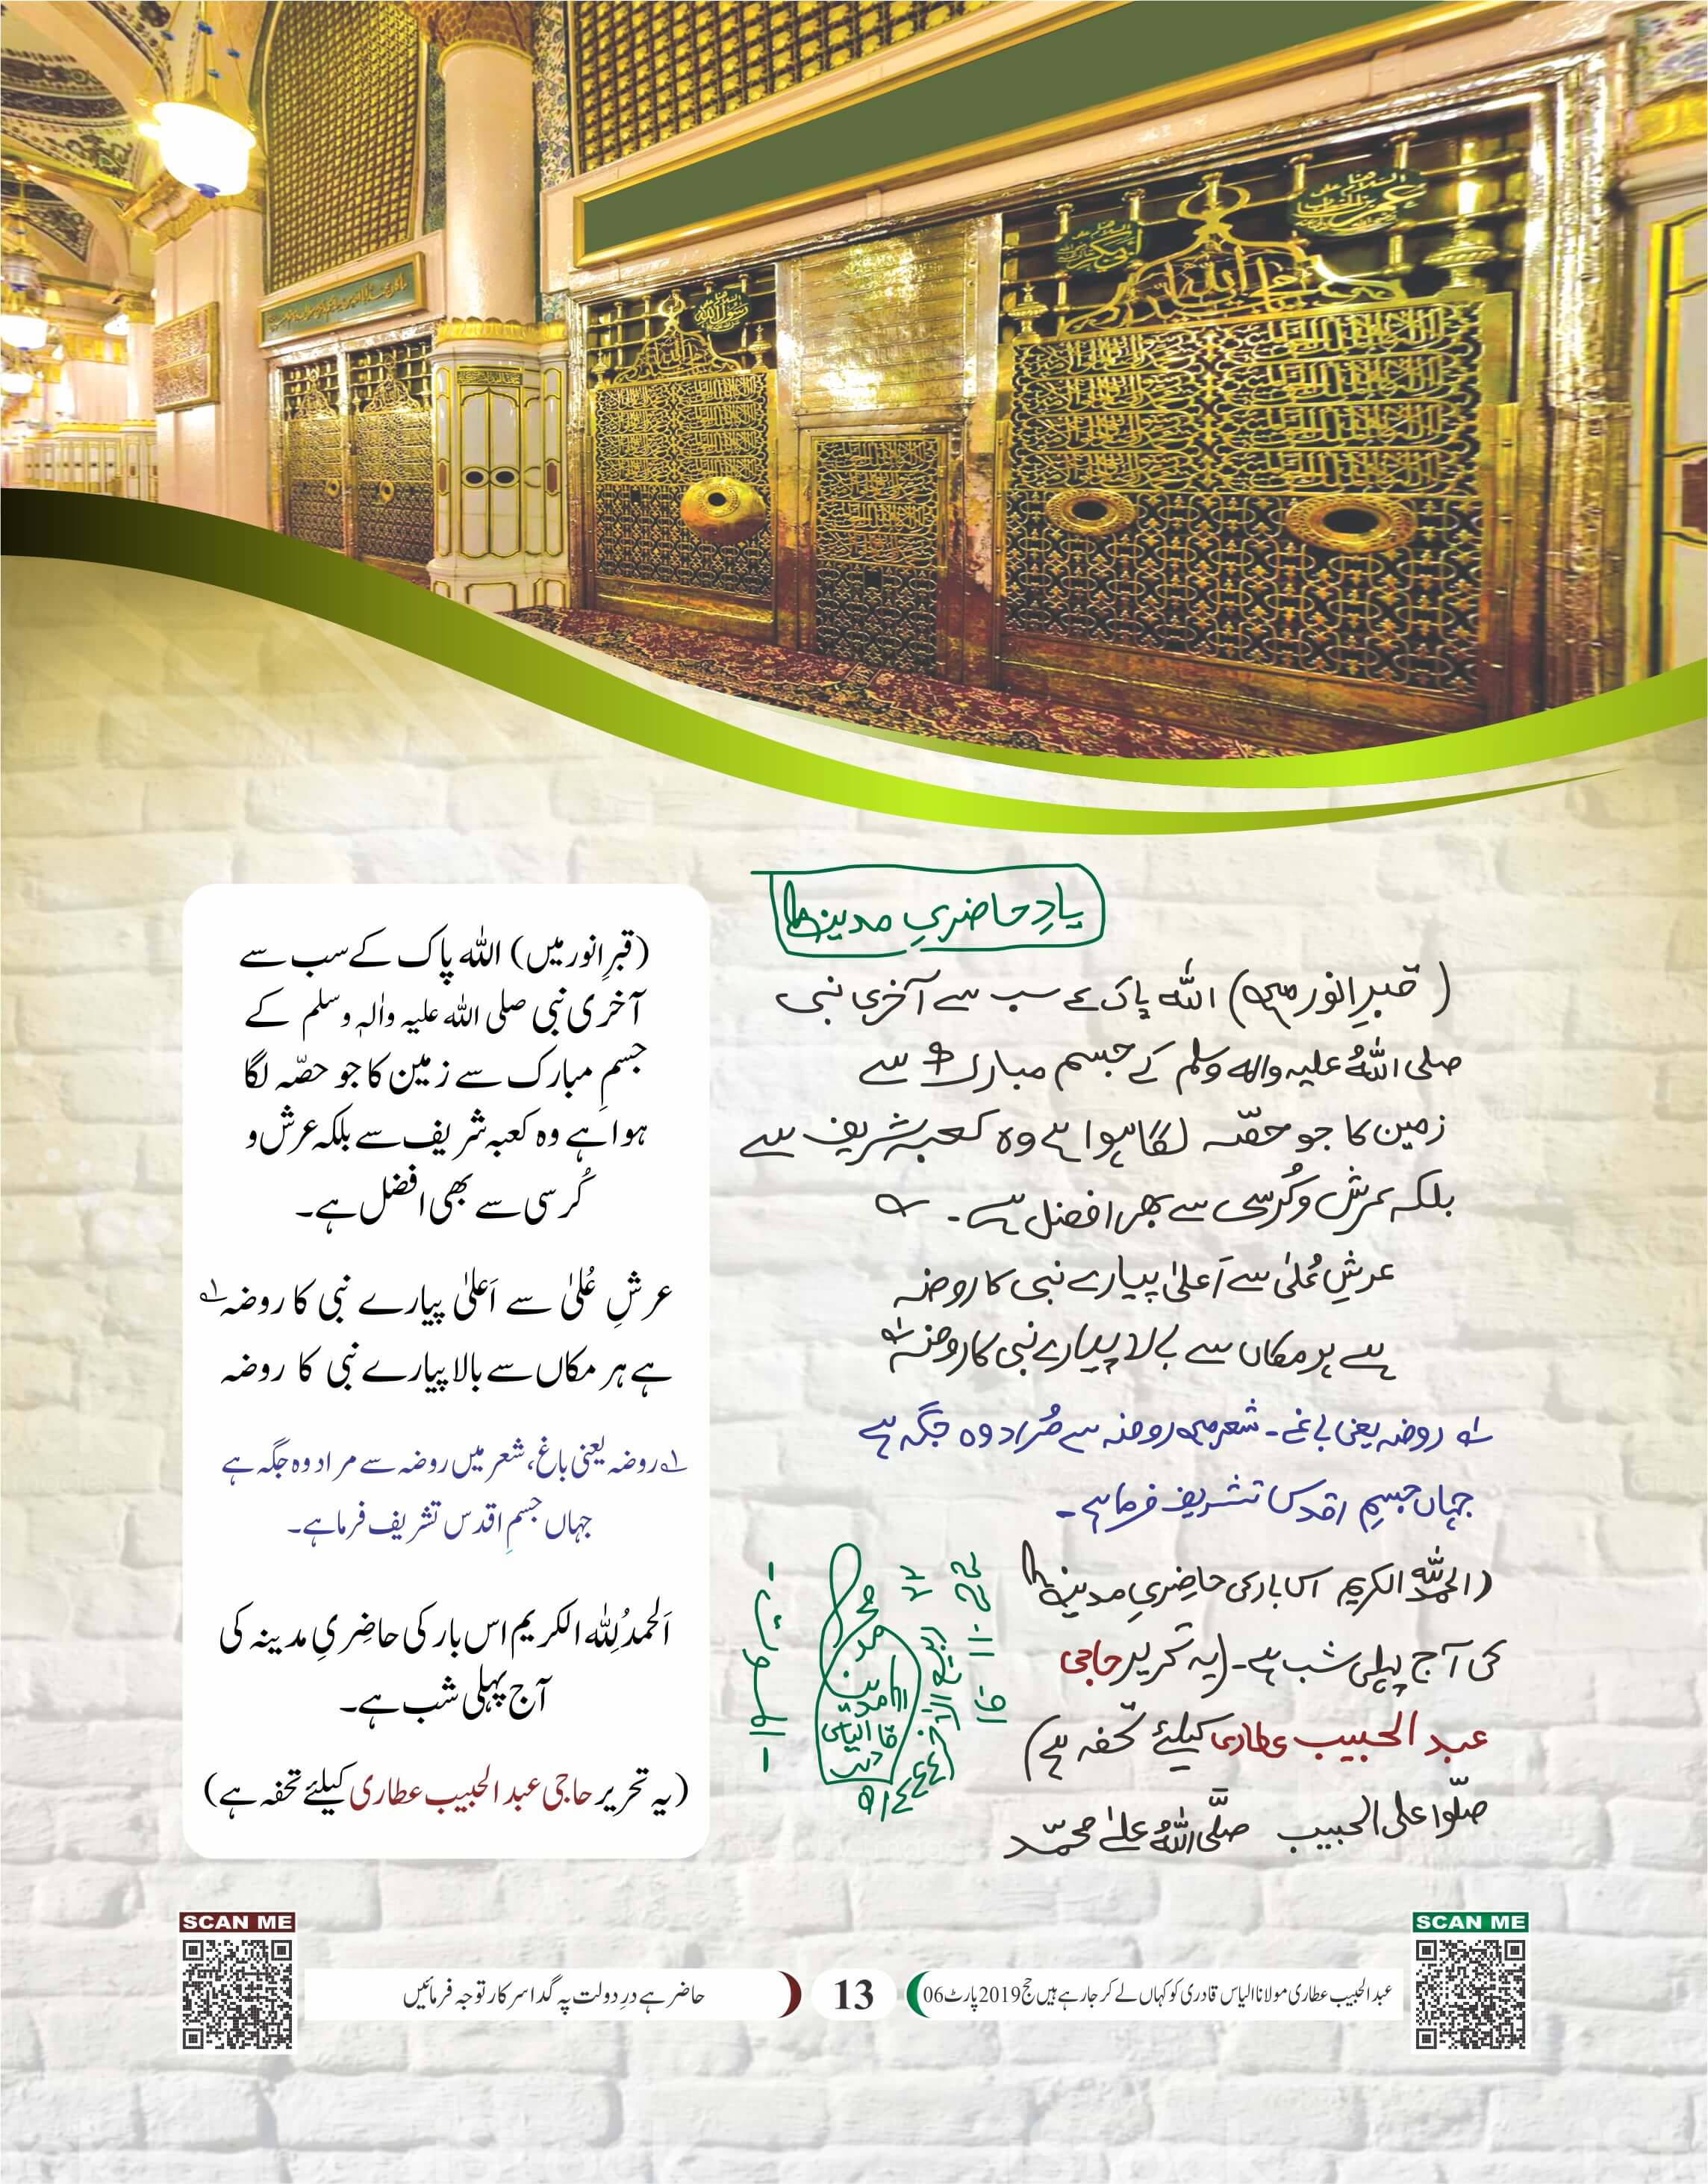 یادِ حاضریِ مدینہ
(قبرِ انور میں) اللہ پاک کے سب سے آخری نبی
صلی اللہُ علیہ واٰلہٖ وسلم کے جسمِ مبارک سے
زمین کا جو حصّہ لگا ہوا ہے وہ کعبہ شریف سے
بلکہ عرش و کُرسی سے بھی افضل ہے۔
عرشِ عُلیٰ سے اَعلیٰ پیارے نبی کا روضہ
ہے ہر مکاں سے بالا پیارے نبی کا روضہ ۱؎
۱؎ روضہ یعنی باغ۔ شعر میں روضہ سے مُراد وہ جگہ ہے
جہاں جسمِ اقدس تشریف فرما ہے۔
(الحمدُ للہ الکریم اس بار کی حاضِریِ مدینہ
کی آج پہلی شب ہے۔ (یہ تحریر حاجی
عبد الحبیب عطاری کیلئے تحفہ ہے)
صلّوا علی الحبیب صلَّی اللہُ علیٰ محمّد
محمد الیاس قادری
۲۲ ربیع الآخر ۱٤٤٤ھ
16-11-22
(قبرِ انور میں) اللہ پاک کے سب سے
آخری نبی صلی اللہ علیہ واٰلہٖ وسلم کے
جسمِ مبارک سے زمین کا جو حصّہ لگا
ہوا ہے وہ کعبہ شریف سے بلکہ عرش و
کُرسی سے بھی افضل ہے۔
عرشِ عُلیٰ سے اَعلیٰ پیارے نبی کا روضہ ۱؎
ہے ہر مکاں سے بالا پیارے نبی کا روضہ
۱؎ روضہ یعنی باغ، شعر میں روضہ سے مراد وہ جگہ ہے
جہاں جسمِ اقدس تشریف فرما ہے۔
اَلحمدُلِلّٰہ الکریم اس بار کی حاضِریِ مدینہ کی
آج پہلی شب ہے۔
(یہ تحریر حاجی عبد الحبیب عطاری کیلئے تحفہ ہے)
SCAN ME
عبد الحبیب عطاری مولانا الیاس قادری کو کہاں لے کر جارہے ہیں حج 2019 پارٹ 06
13
حاضر ہے درِ دولت پہ گدا سرکار توجہ فرمائیں
SCAN ME